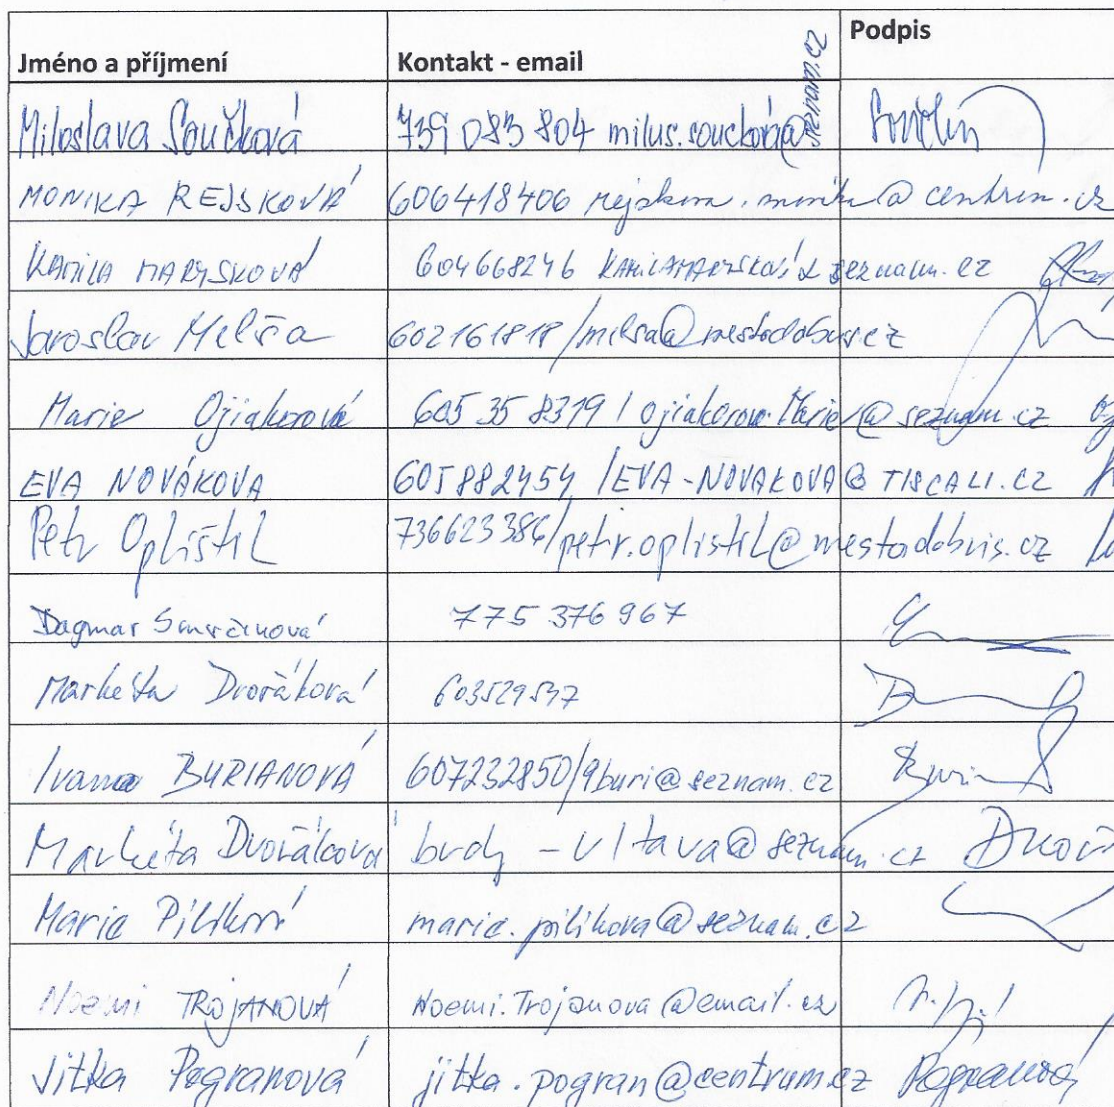 Jméno a příjmení Kontakt - email Podpis
Miloslava Součková 739 083 804 milus.souckova@seznam.cz
MONIKA REJSKOVÁ 606418406 rejskova.monika@centrum.cz
KAMILA MARYSKOVÁ 604668246 seznam.cz
Jaroslav Melša 602161818/melsa@mestodobris.cz
Marie Ojiakorová 605 35 8319 / ojiakorova.Marie@seznam.cz
EVA NOVÁKOVA 605882454 /EVA-NOVAKOVA@TISCALI.CZ
Petr Oplištil 736623386/petr.oplistil@mestodobris.cz
Dagmar 775 376 967
Markéta Dvořáková 603529547
Ivana BURIANOVÁ 607232850/9buri@seznam.cz
Markéta Dvořáková brdy-vltava@seznam.cz
Marie Pilíková marie.pilikova@seznam.cz
Noemi TROJANOVÁ Noemi.Trojanova@email.cz
Jitka Pogranová jitka.pogran@centrum.cz Pogranová